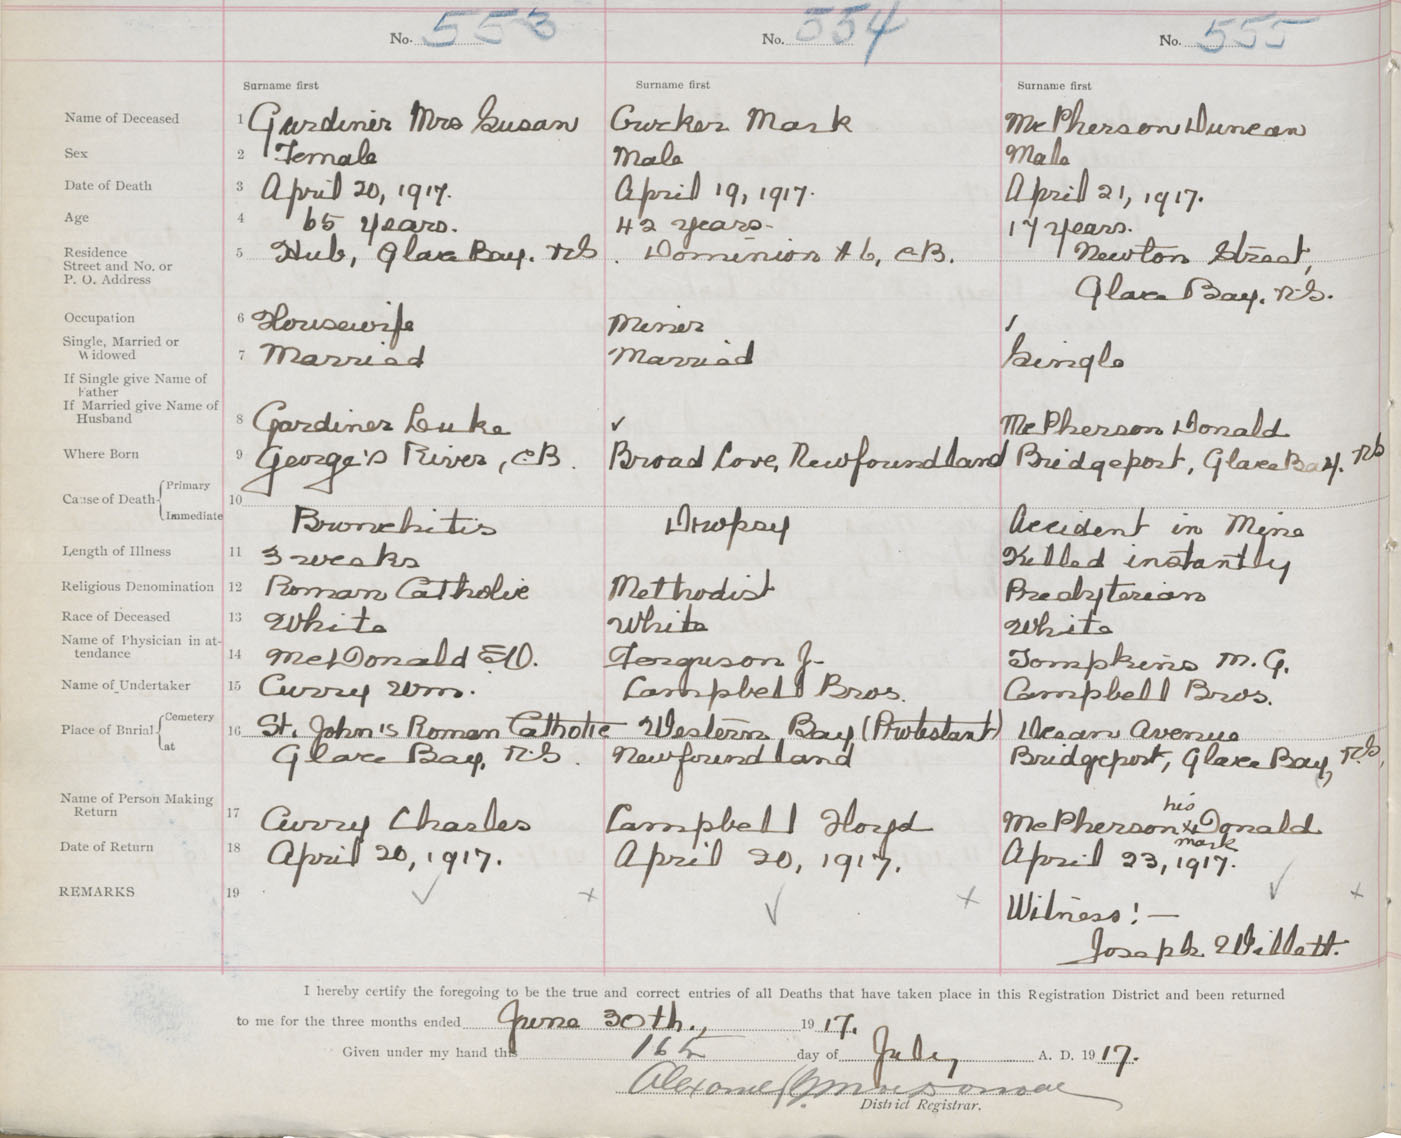 No. 553 No. 554 No. 555
Surname first Surname first Surname first
Name of Deceased 1 Gardiner Mrs Susan Crocker Mark McPherson Duncan
Sex 2 Female Male Male
Date of Death 3 April 20, 1917. April 19, 1917. April 21, 1917.
Age 4 65 years. 42 years. 17 years.
Residence 5 Hub, Glace Bay. N.S. Dominion #6, C.B. Newton Street,
Street and No. or
P. O. Address Glace Bay. N.S.
Occupation 6 Housewife Miner
Single, Married or
Widowed 7 Married Married Single
If Single give Name of
Father
If Married give Name of
Husband 8 Gardiner Luke ✓ McPherson Donald
Where Born 9 George's River, C.B. Broad Cove, Newfoundland Bridgeport, Glace Bay. N.S
Cause of Death Primary 10
Immediate Bronchitis Dropsy Accident in Mine
Length of Illness 11 3 weeks Killed instantly
Religious Denomination 12 Roman Catholic Methodist Presbyterian
Race of Deceased 13 White White White
Name of Physician in at-
tendance 14 McDonald Ferguson J. Tompkins M. G.
Name of Undertaker 15 Curry Wm. Campbell Bros. Campbell Bros.
Place of Burial Cemetery 16 St. John's Roman Catholic Western Bay (Protestant) Dean Avenue
at Glace Bay, N.S. Newfoundland Bridgeport, Glace Bay, N.S,
Name of Person Making his
Return 17 Curry Charles Campbell Floyd McPherson x Donald
mark
Date of Return 18 April 20, 1917. April 20, 1917. April 23, 1917.
REMARKS 19 ✓ x ✓ x ✓ x
Witness:—
Joseph Willett.
I hereby certify the foregoing to be the true and correct entries of all Deaths that have taken place in this Registration District and been returned
to me for the three months ended June 30th., 1917.
Given under my hand this 16th day of July A. D. 1917.
District Registrar.